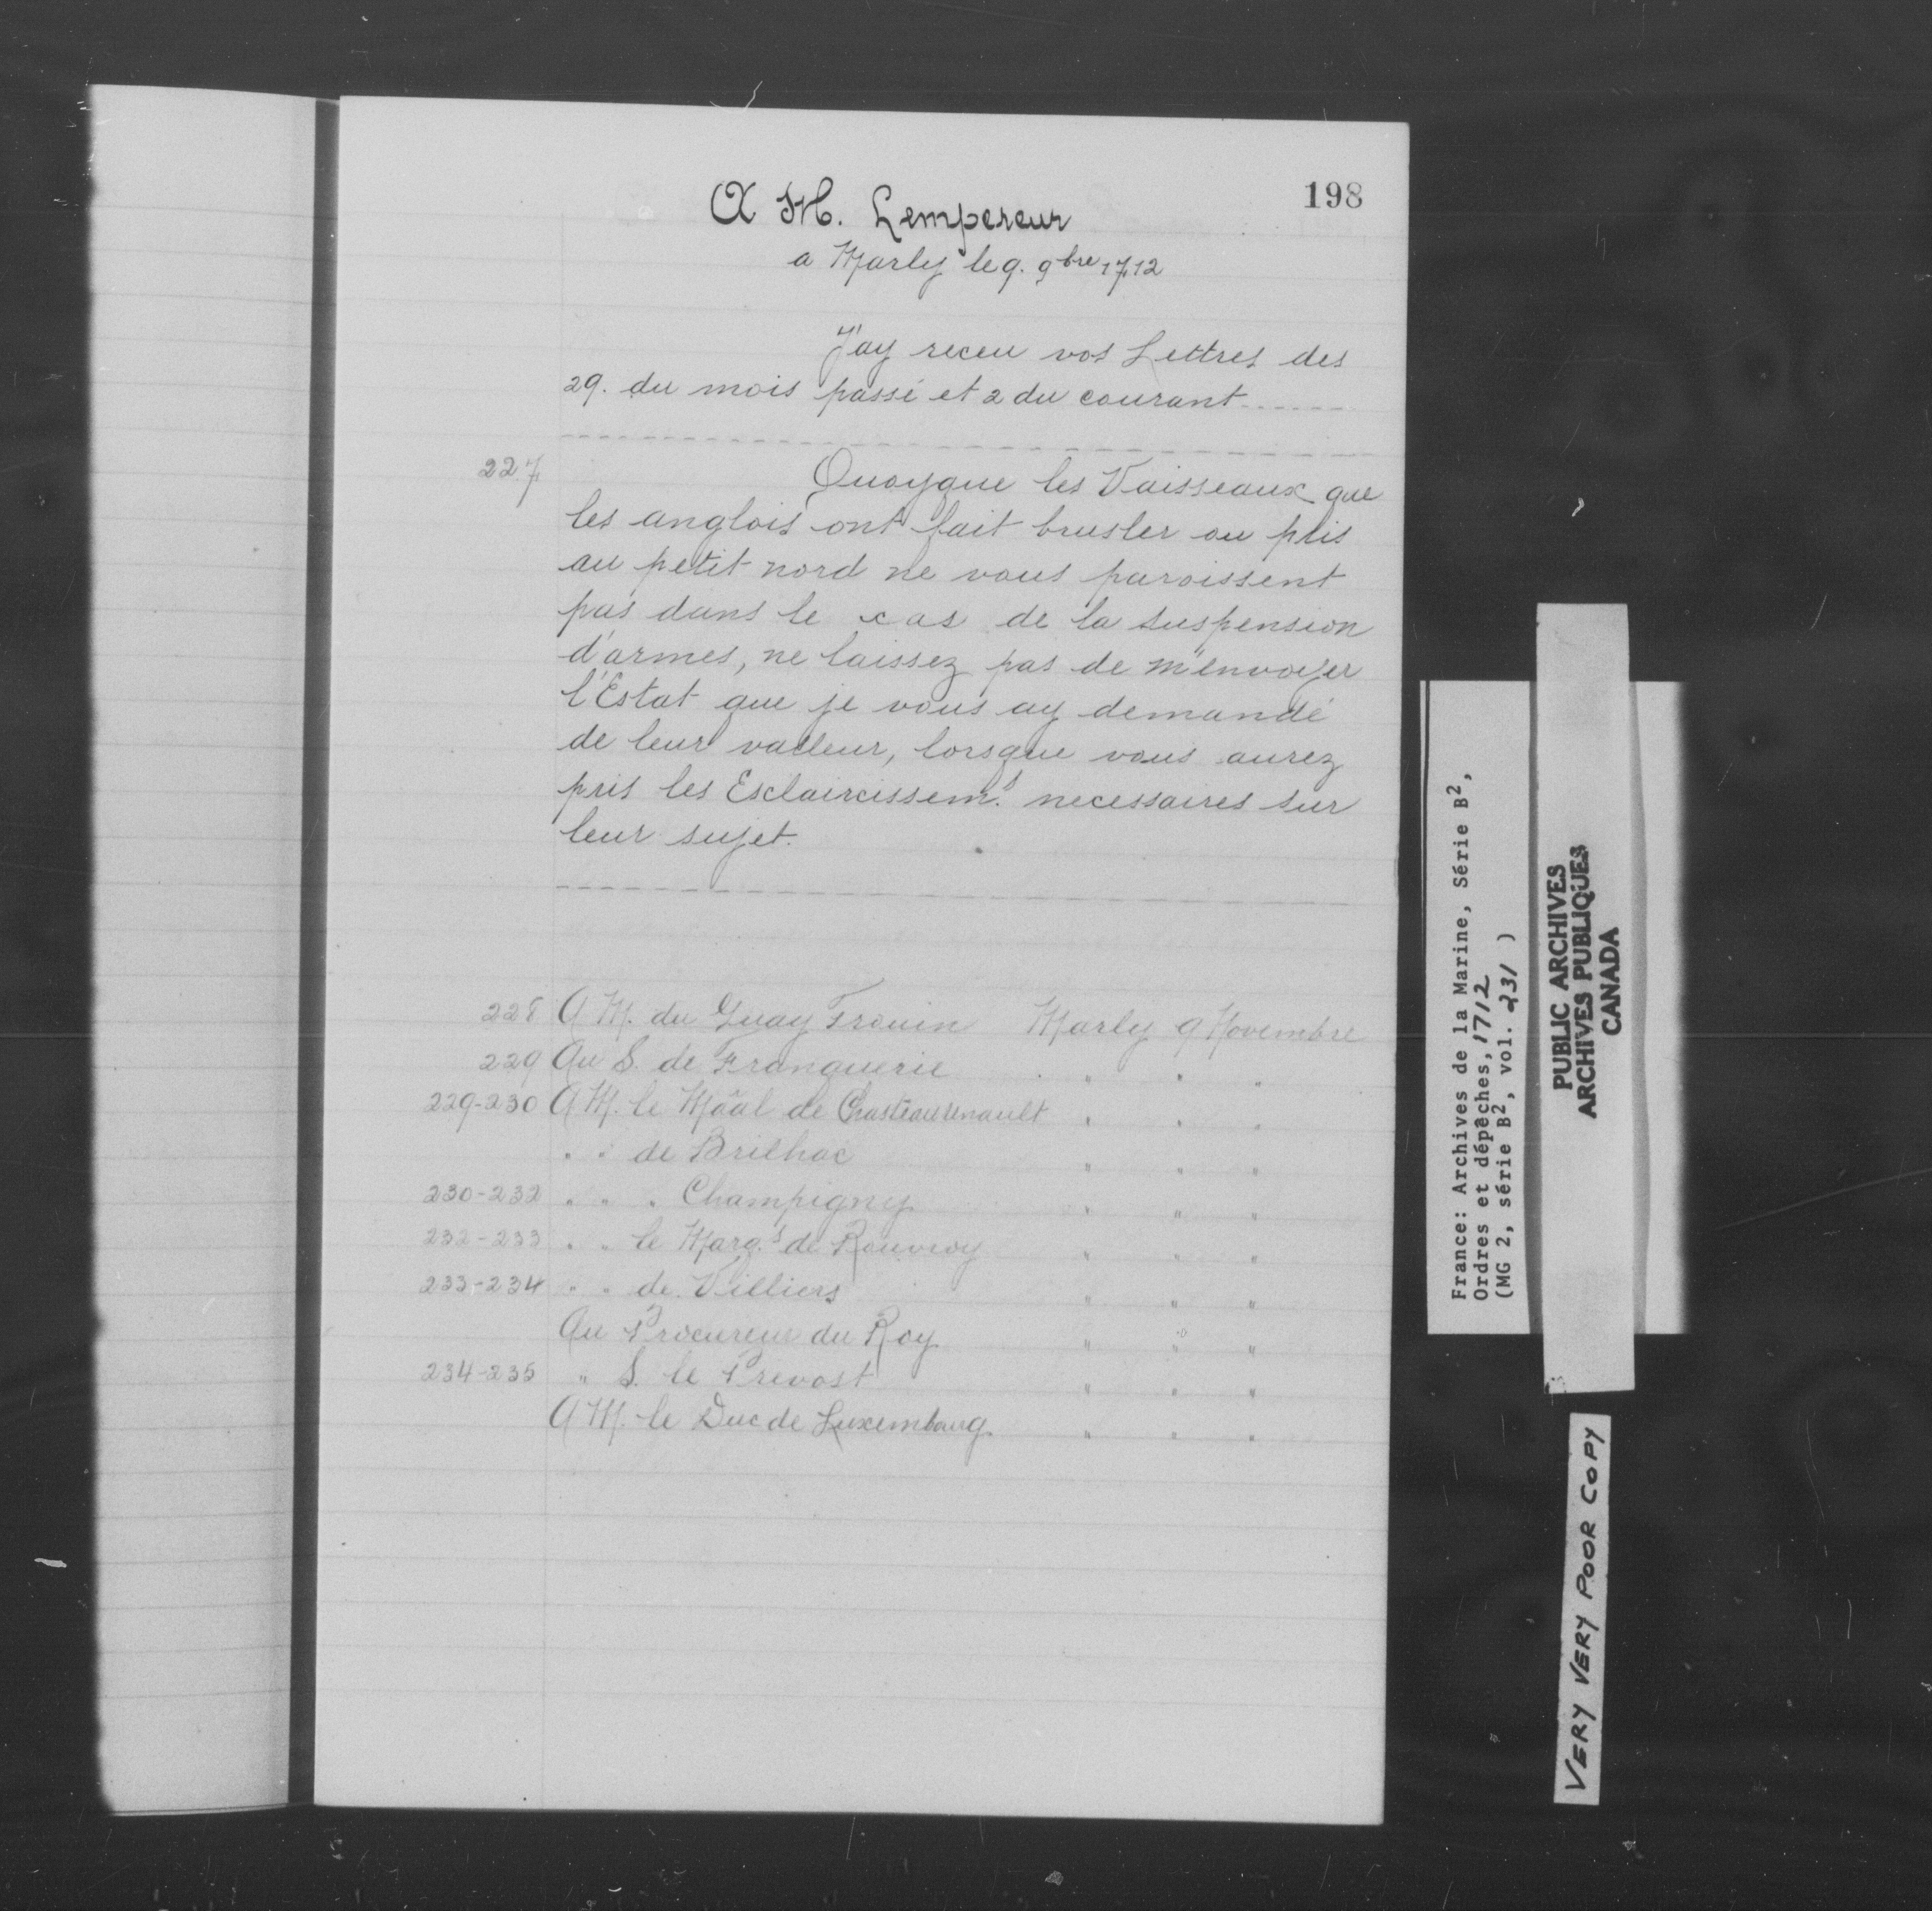 198
A M. Lempereur
a Marly le 9. 9bre 1712
J'ay receu vos Lettres des
29. du mois passé et 2 du courant......
227
Quoyque les Vaisseaux que
les anglois ont fait brusler ou pris
au petit nord ne vous paroissent
pas dans le cas de la suspension
d'armes, ne laissez pas de m'envoyer
l'Estat que je vous ay demandé
de leur valleur, lorsque vous aurez
pris les Esclaircissem.s necessaires sur
leur sujet.
228 A M. du Guay Trouin Marly 9 Novembre
229 Au S. de Franquerie " " "
229-230 A M. le Mâal de Chasteaurenault " " "
" " de Brilhac " " "
230-232 " " " Champigny " " "
232-233 " " le Marq.s de Rouvroy " " "
233-234 " " de Villiers " " "
Au Procureur du Roy " " "
234-235 " S. le Prevost " " "
A M. le Duc de Luxembourg " " "
France: Archives de la Marine, Série B2,
Ordres et dépêches, 1712
(MG 2, série B2, vol. 231 )
PUBLIC ARCHIVES
ARCHIVES PUBLIQUES
CANADA
VERY VERY POOR COPY